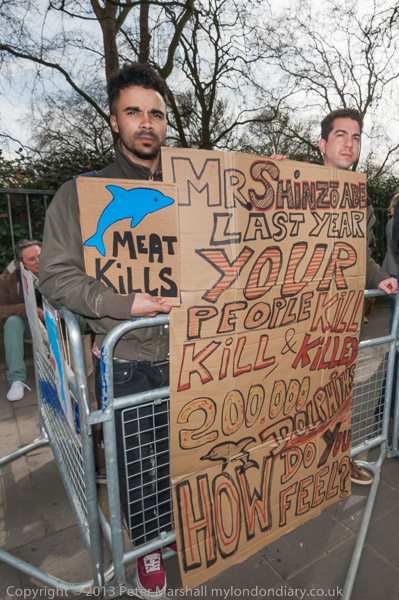 MEAT
KILLS
MR SHINZŌ ABE
LAST YEAR
YOUR
PEOPLE KILL
KILL & KILLED
200.000
DOLPHINS
HOW DO YOU
FEEL?
Copyright © 2013 Peter Marshall mylondondiary.co.uk